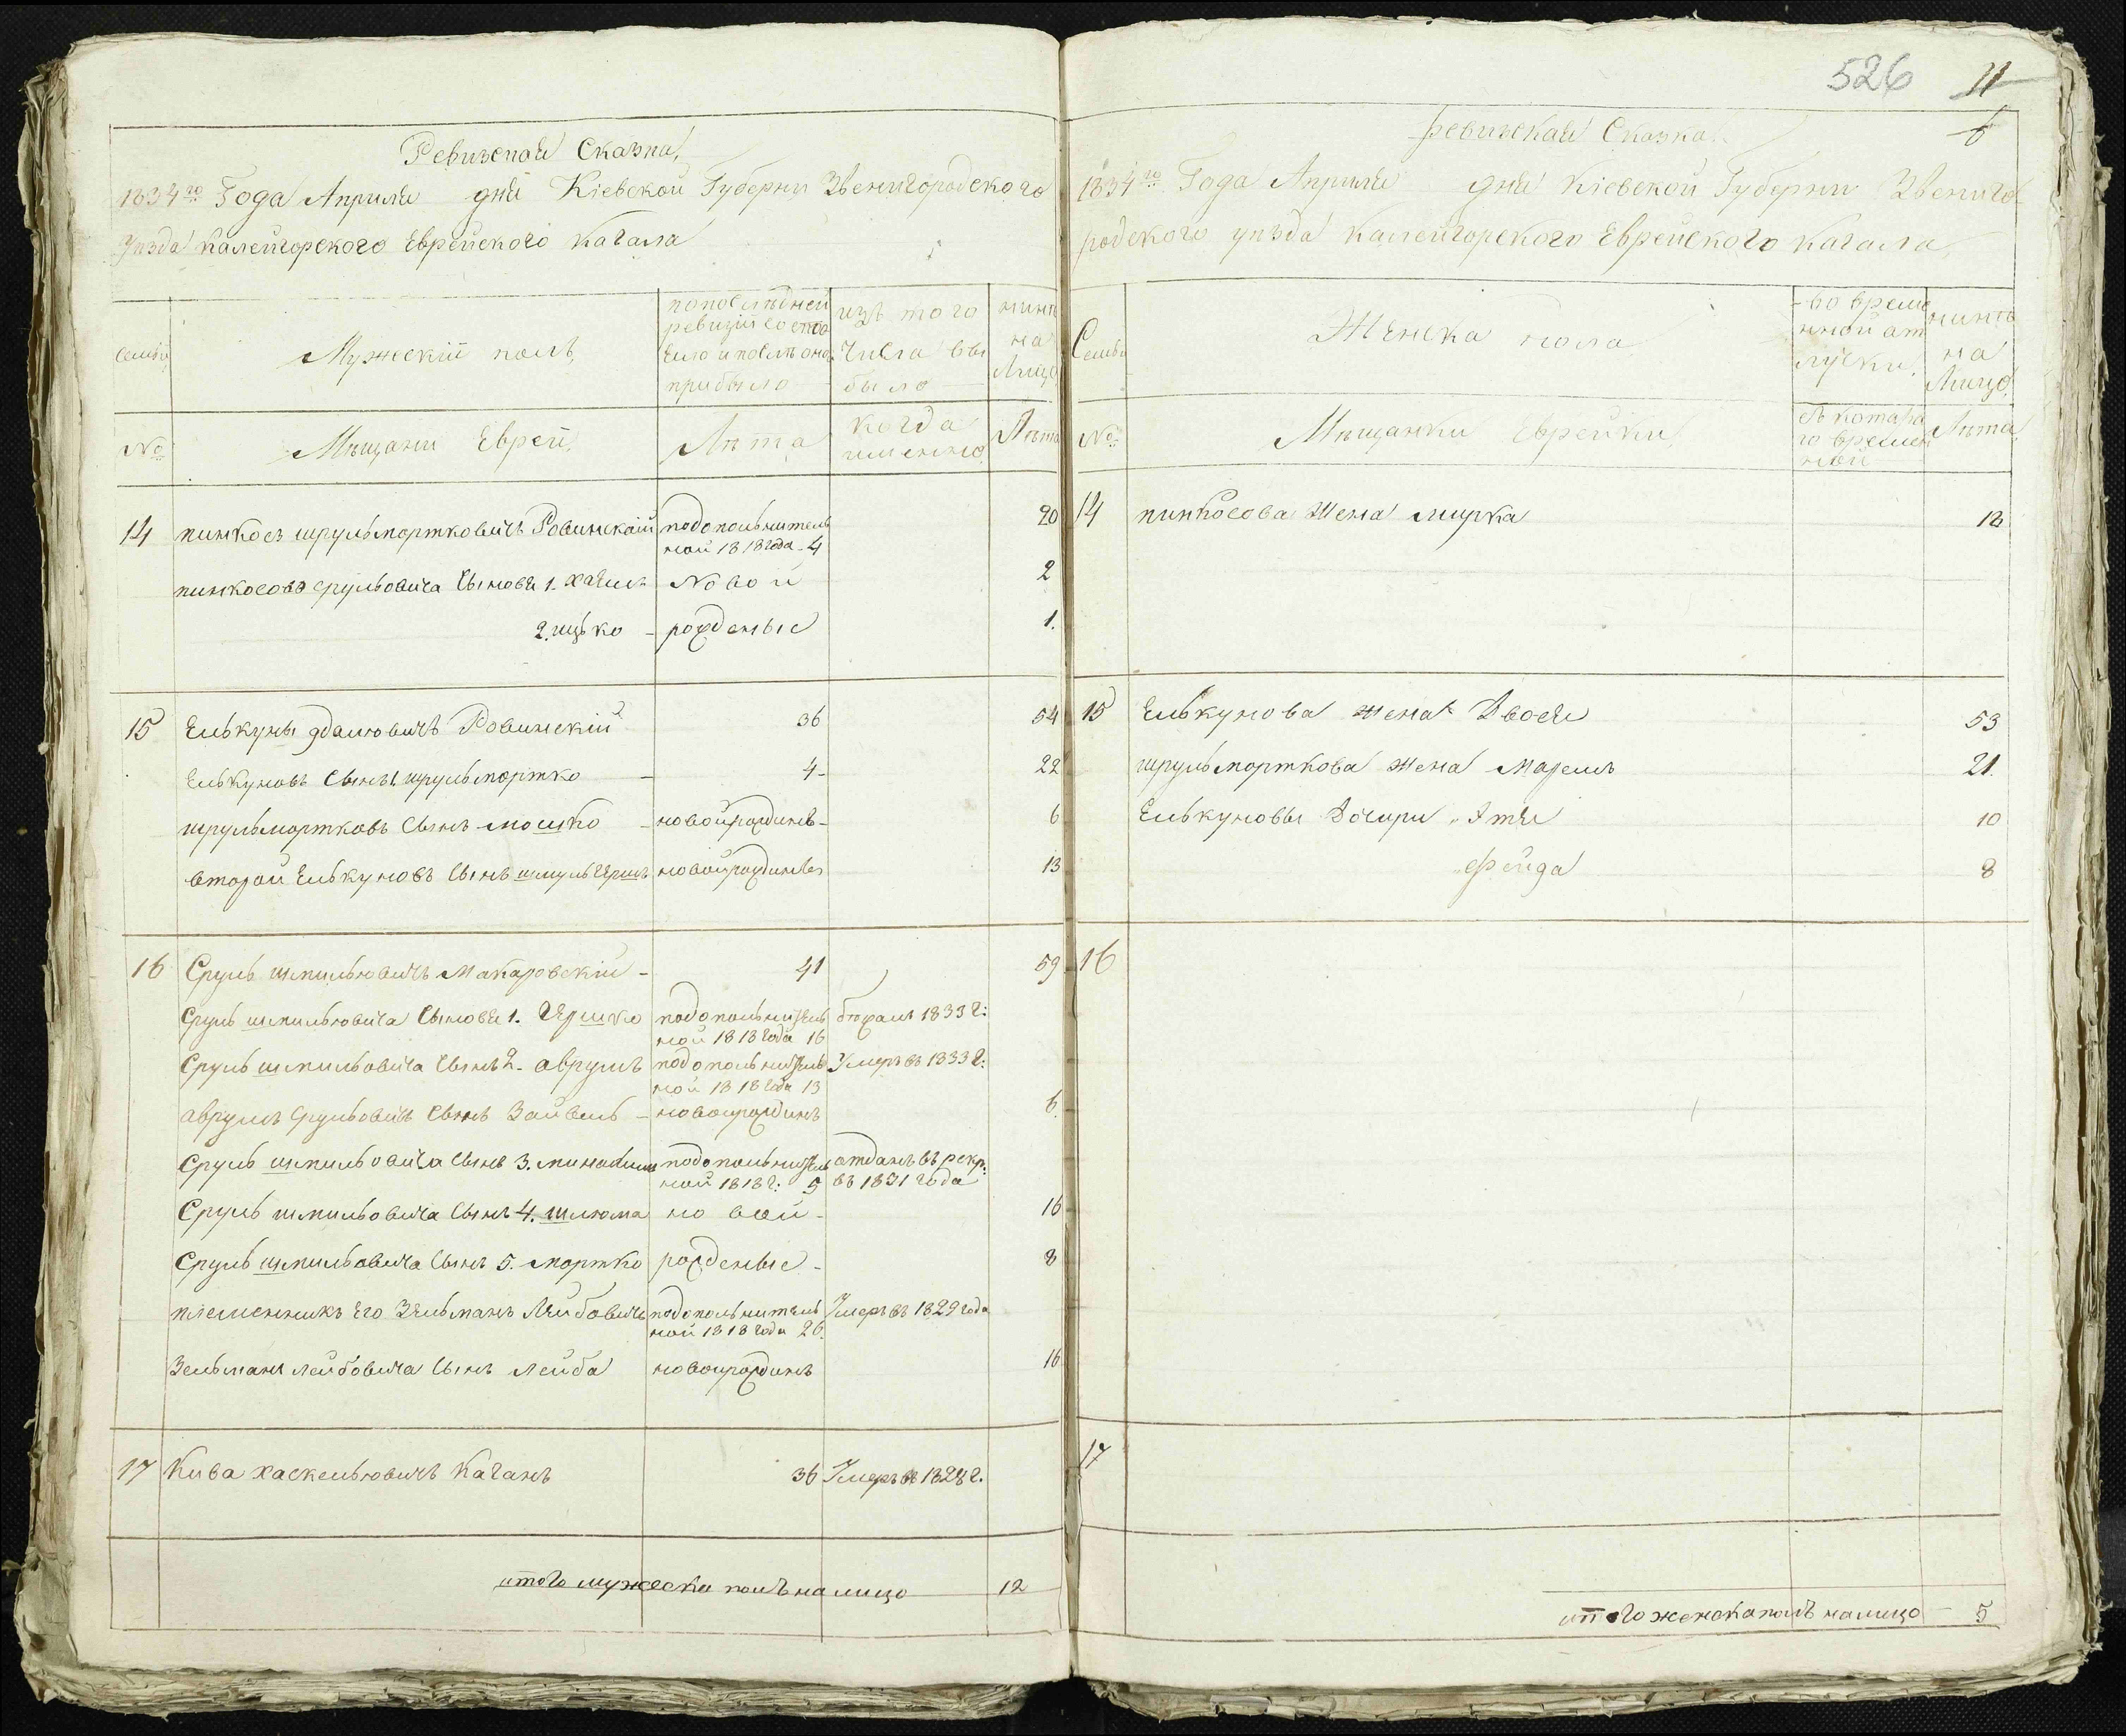 526 11
6
Ревизская Сказка,
1834го Года Апреля дня Кіевской Губерни Звенигородского
уѣзда Калейгорского Еврейского Кагала
Семьи
Мужескій полъ,
по последней
ревизіи состоя
ело и послѣ оной
прибыло
изъ того
числа вы
было
нинѣ
на
Лицо
№
Мѣщани Еврей,
Лѣта
когда
именно
Лѣта
14 пинкосъ шрульмортковичъ Ровинскій подополнитель 20
ной 1818 года 4
пинкосова срульовича Сыновя 1. хаимъ Новой 2
2. ицько – рожденые 1.
15 Елькуны Ровинскій 36 54
Елькуновъ Сынъ 1 шрульмортко – 4 – 22
шрульмортковъ Сынъ мошко – новойрождинъ – 6
второй Елькуновъ Сынъ шмульгершъ новойрождинъ 13
16 Сруль шмильовичъ Макаровскій – 41 59
Сруль шмильовича Сыновя 1. Гершко подополнитель бежалъ 1833 г:
ной 1818 года 16
Сруль шмильовича Сынъ 2. аврумъ подополнитель Умеръ въ 1833 г:
ной 1818 года 13
аврумъ Срульовичъ Сынъ Зайвель – новойрождинъ 6.
Сруль шмильовича Сынъ 3. подополнитель атданъ въ рекр:
ной 1818 г: 5 въ 1831 года
Сруль шмильовича Сынъ 4. шлюма но вой – 16
Сруль шмильовича Сынъ 5. мортко рожденые – 8
племенникъ Его Зельманъ Лейбовичъ подополнитель Умеръ въ 1829 года
ной 1818 года 26.
Зельманъ лейбовича Сынъ Лейба новойрождинъ 16
17 Кива хаскельовичъ Каганъ 36 Умеръ въ 1828 г.
итого мужеска полъ на лицо 12
ревизская Сказка
1834го Года Апреля дня Кіевской Губерни Звениго
родского уѣзда Калейгорского Еврейского Кагала,
Семьи
Женска пола
во време
нной ат
лучки.
нинѣ
на
Лицо,
№
Мѣщанки Еврейки,
съ котара
го времен
ной
Лѣта,
14 пинкосова Жена мирка 18
15 Елькунова жена Двося 53
шрульморткова жена 21.
Елькуновы Дочери Этя 10
Фейда 8
16
17
итого женска полъ на лицо – 5